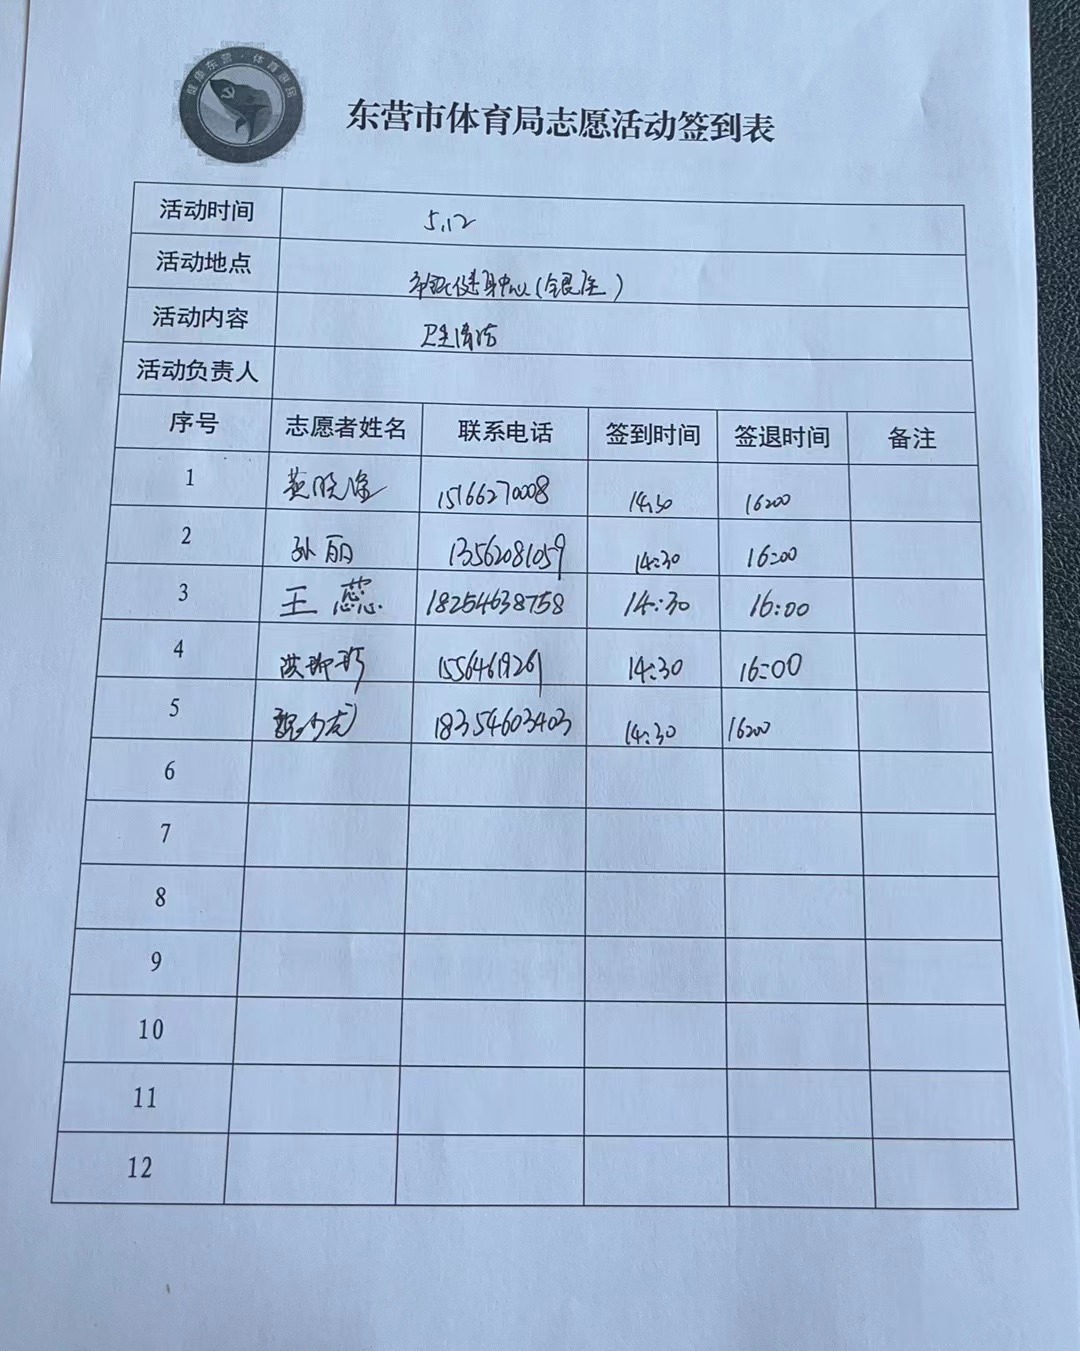 健康东营·体育惠民
东营市体育局志愿活动签到表
活动时间 5.12
活动地点 健身中心(银座)
活动内容 卫生清洁
活动负责人
序号 志愿者姓名 联系电话 签到时间 签退时间 备注
1 15166270008 14:30 16:00
2 孙丽 13562081059 14:30 16:00
3 王蕊 18254638758 14:30 16:00
4 14:30 16:00
5 18354603403 14:30 16:00
6
7
8
9
10
11
12